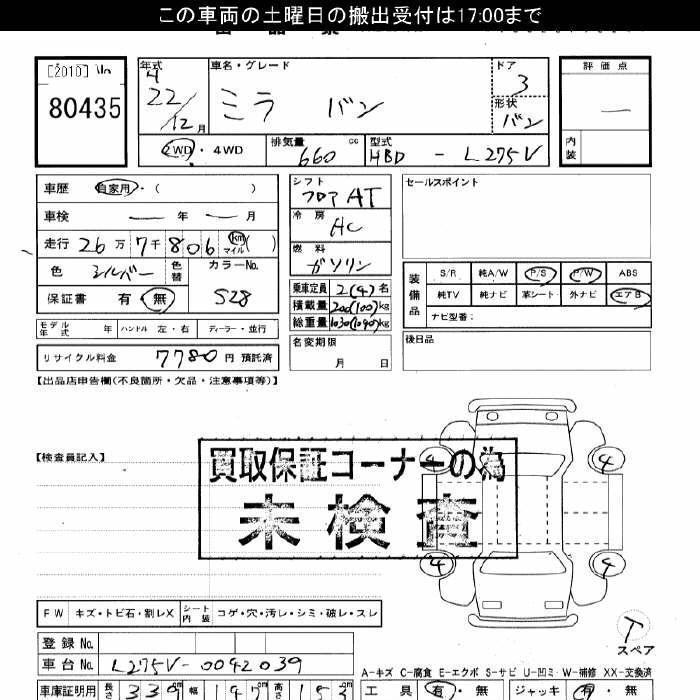 この車両の土曜日の搬出受付は17:00まで
[2010]
80435
年式 車名・グレード ドア
22/12月 ミラ バン 3
形状
バン
2WD・4WD 排気量 660 cc 型式 HBD - L275V
評価点
—
内装
車歴 自家用・( )
車検 — 年 — 月
走行 26万7千806 km マイル ( )
色 シルバー 色替 カラーNo. S28
保証書 有・無
モデル年式 年 ハンドル 左・右 ディーラー・並行
リサイクル料金 7780 円 預託済
シフト フロア AT
冷房 AC
燃料 ガソリン
乗車定員 2(4)名
積載量 200(100)kg
総重量 1030(1090)kg
名変期限
月 日
セールスポイント
装備品 S/R 純A/W P/S P/W ABS
純TV 純ナビ 革シート 外ナビ エアB
ナビ型番:
後日品
【出品店申告欄(不良箇所・欠品・注意事項等)】
【検査員記入】
買取保証コーナーの為
未検査
4 4
4 4
FW キズ・トビ石・割レX シート内装 コゲ・穴・汚レ・シミ・破レ・スレ
T
スペア
登録No.
車台No. L275V-0042039
A-キズ C-腐食 E-エクボ S-サビ U-凹ミ W-補修 XX-交換済
車庫証明用 長さ 339cm 幅 147 高さ 153cm
工具 有・無 ジャッキ 有・無